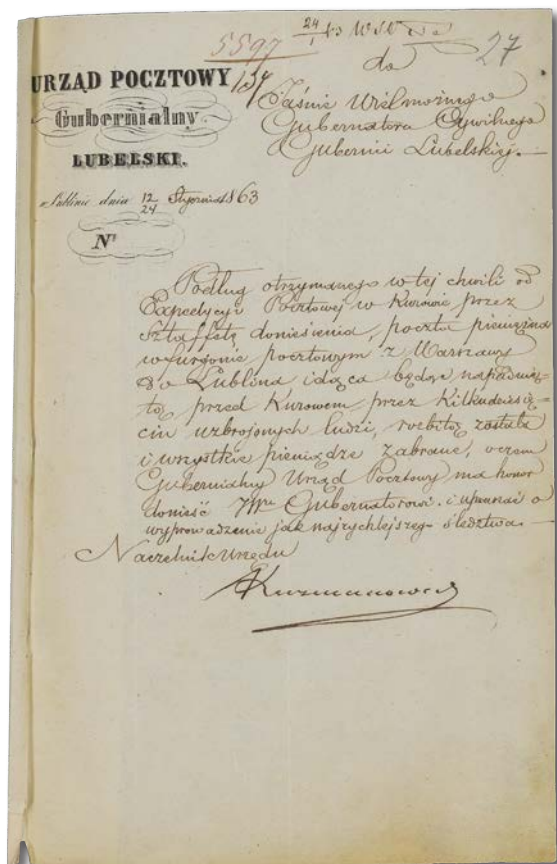 5597
24/1 63
27
139
do
URZĄD POCZTOWY
Gubernialny
LUBELSKI.
Jaśnie Wielmożnego
Gubernatora Cywilnego
Gubernii Lubelskiej.
w Lublinie dnia 12/24 Stycznia 1863
N°
Podług otrzymanego w tej chwili od
Expedycyi Pocztowej w Kurowie przez
Sztaffetę doniesienia, poczta pieniężna
w furgonie pocztowym z Warszawy
do Lublina idąca będąc napadnię-
tą przed Kurowem przez Kilkudziesię-
ciu uzbrojonych ludzi, rozbitą została
i wszystkie pieniądze zabrane, o czem
Gubernialny Urząd Pocztowy ma honor
donieść JWmu Gubernatorowi i upraszać o
wyprowadzenie jak najrychlejszego śledztwa.
Naczelnik Urzędu